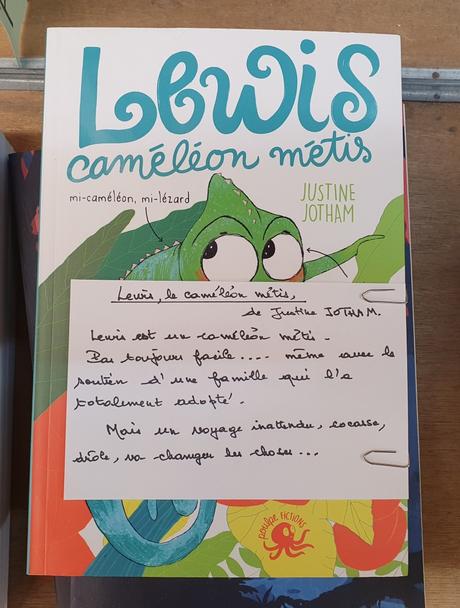 Lewis
caméléon métis
mi-caméléon, mi-lézard
JUSTINE
JOTHAM
Lewis, le caméléon métis,
de Justine JOTHAM.
Lewis est un caméléon métis.
Pas toujours facile.... même avec le
soutien d'une famille qui l'a
totalement adopté.
Mais un voyage inattendu, cocasse,
drôle, va changer les choses...
poulpe FICTIONS